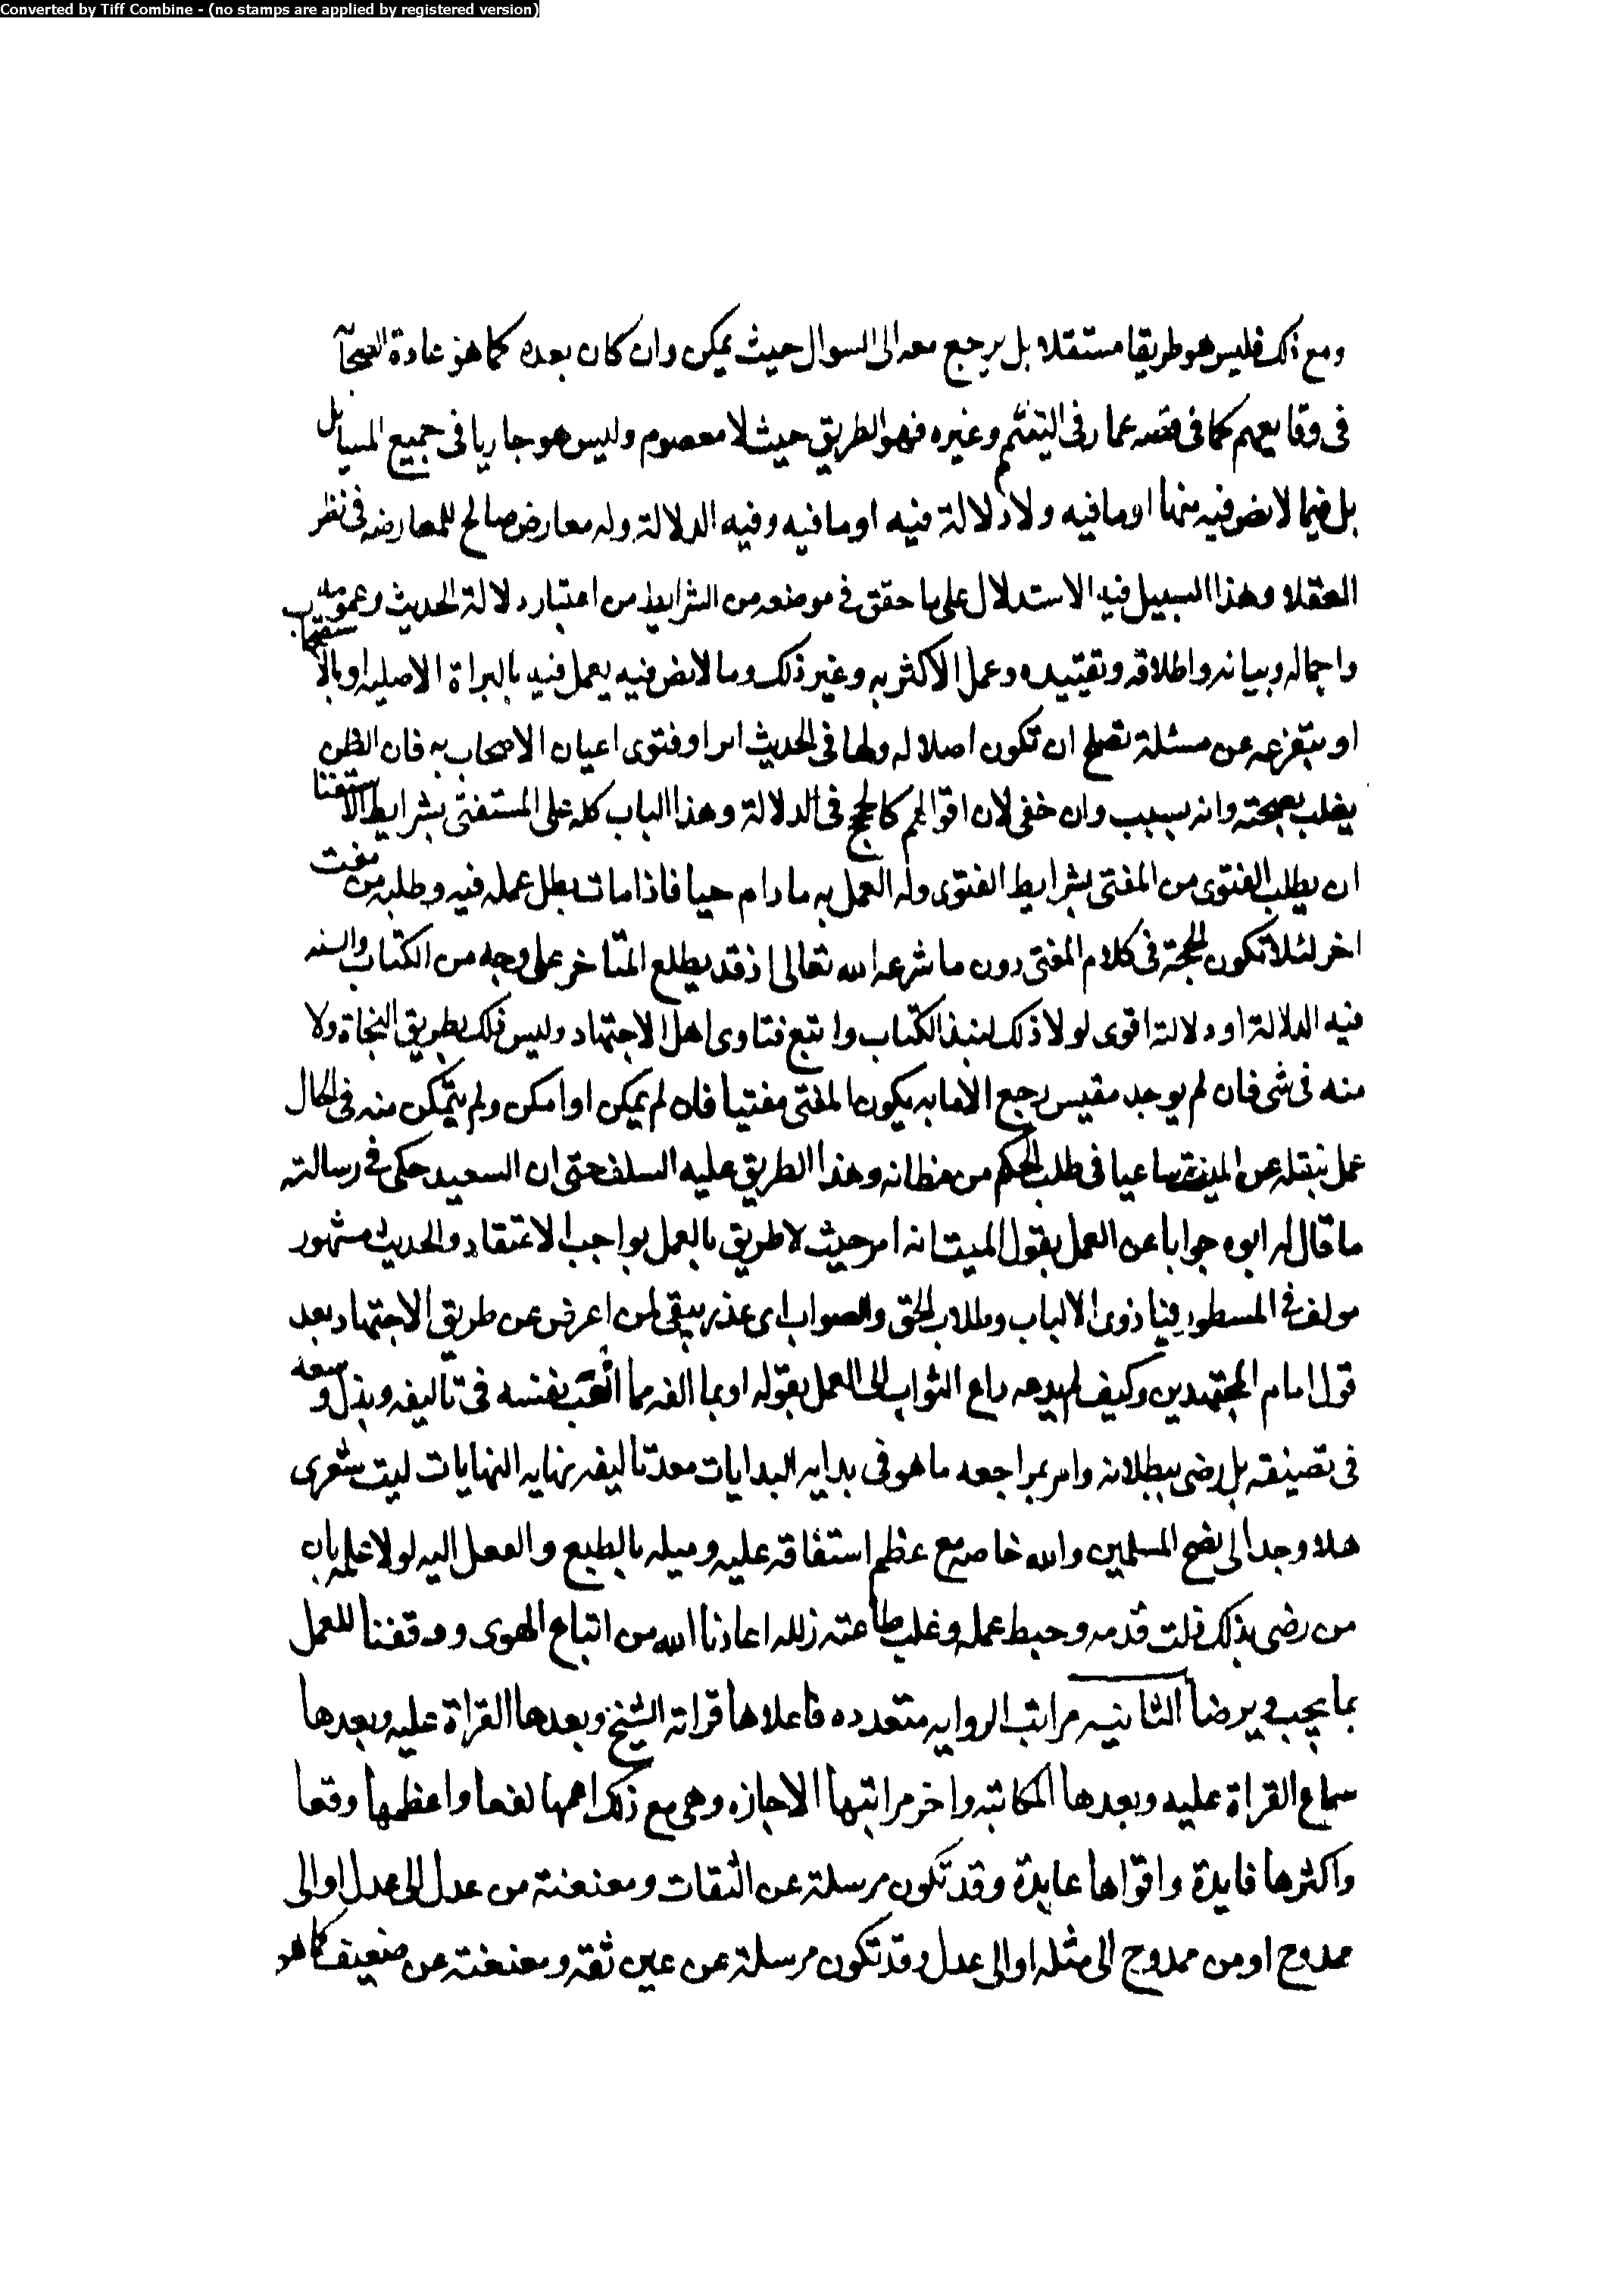 Converted by Tiff Combine - (no stamps are applied by registered version)
ومع ذلك فليس هو طريقا مستقلا بل يرجع معه الى السوال حيث يمكن وان كان بعده كما هو عادة الصحابة
فى وقايعهم كما فى قصه عمار فى التيمم وغيره فهو الطريق حيث لا معصوم وليس هو جاريا فى جميع المسايل
بل فيما لا نص فيه منها او ما فيه ولا دلالة فيه او ما فيه وفيه الدلالة وله معارض صالح للمعارضه فى نظر
العقلا وهذا السبيل فيه الاستدلال على ما حقق فى موضعه من الشرايط من اعتبار دلالة الحديث وعمومه
واجماله وبيانه واطلاقه وتقييده وعمل الاكثر به وغير ذلك وما لا نص فيه يعمل فيه بالبراة الاصليه او بالاستصحاب
او بتفرعه عن مسئلة تصلح ان تكون اصلا له ولها فى الحديث اثرا وفتوى اعيان الاصحاب به فان الظن
يغلب بصحته وانه بسبب وان خفى لان اقوالهم كالحجج فى الدلالة وهذا الباب كله على المستفتى بشرايط الاستفتا
ان يطلب الفتوى من المفتى بشرايط الفتوى وله العمل به ما دام حيا فاذا مات بطل عمله فيه وطلبه من مفت
اخر لئلا تكون الحجة فى كلام المفتى دون ما شرعه الله تعالى اذ قد يطلع المتاخر على وجه من الكتاب والسنه
فيه الدلالة او دلالة اقوى لولا ذلك لنبذ الكتاب واتبع فتاوى اهل الاجتهاد وليس ذلك بطريق النجاة ولا
منه فى شى فان لم يوجد مقيس رجع الى ما به يكون المفتى مفتيا فان لم يمكن او امكن ولم يتمكن منه فى الحال
عمل بنقله عن الميت ساعيا فى طلب الحكم من مظانه وهذا الطريق عليه السلف حتى ان السعيد حكى فى رسالته
ما قال له ابوه جوابا عن العمل بقول الميت انه امر حيث لا طريق بالعمل بواجب الاعتقاد والحديث مشهور
مولف فى المسطور فيا ذوى الالباب وطلاب الحق والصواب اى عذر يبقى لمن اعرض عن طريق الاجتهاد بعد
قول امام المجتهدين وكيف لم يدعه داع الثواب الى العمل بقوله او بما الفه مما اتعب نفسه فى تاليفه وبذل وسعه
فى تصنيفه بل رضى ببطلانه وامر بمراجعه ما هو فى بدايه البدايات معد تاليفه نهايه النهايات ليت شعرى
هلا وجد الى نصح المسلمين والله خاصه مع عظم استفاقه عليه وميله بالطبع والعمل اليه لولا علمه بان
من رضى بذلك زلت قدمه وحبط عمله وغلب طاعته زلله اعاذنا الله من اتباع الهوى ووفقنا للعمل
بما يحب ويرضا الثانيه مراتب الروايه متعدده فاعلاها قراته الشيخ وبعدها القراة عليه وبعدها
سماع القراة عليه وبعدها المكاتبه واخر مراتبها الاجازه وهى مع ذلك اعمها نفعا واعظمها وقعا
واكثرها فايدة واقواها عايدة وقد تكون مرسلة عن الثقات ومعنعنة من عدل الى عدل او الى
ممدوح او من ممدوح الى مثله او الى عدل وقد تكون مرسلة عن غير ثقه ومعنعنة عن ضعيف كما هو